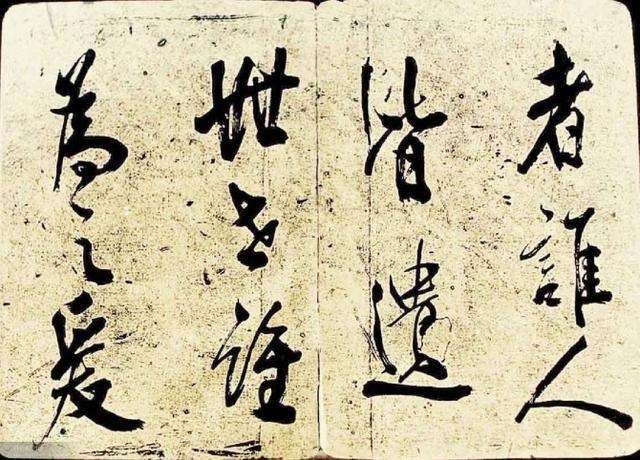 者誰人
皆遺
世世誰
為之爰